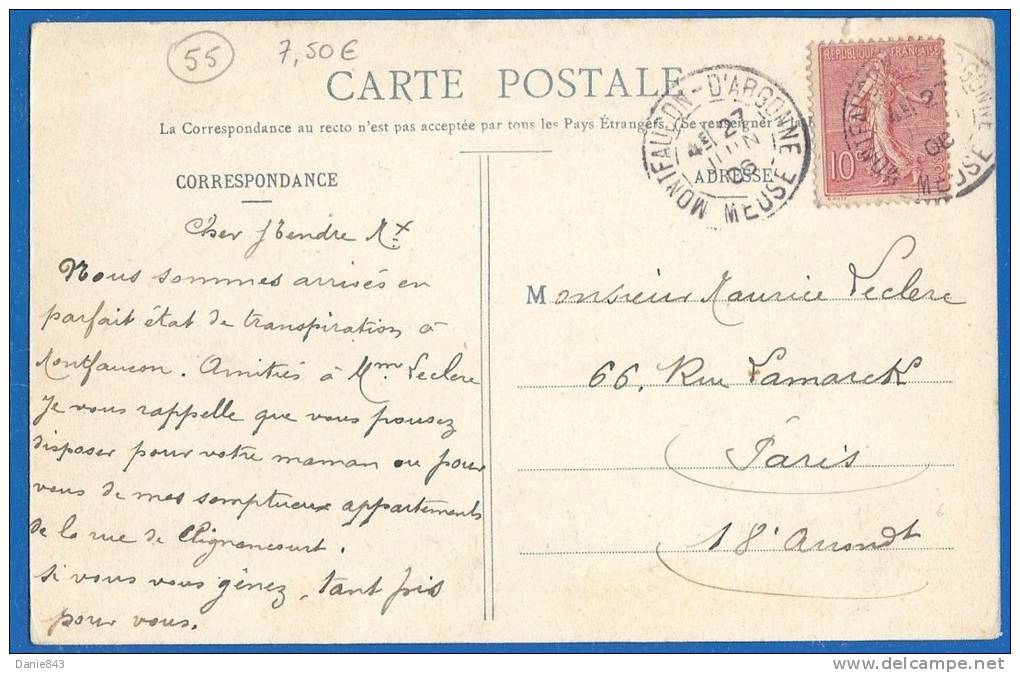 55
7,50€
CARTE POSTALE
La Correspondance au recto n'est pas acceptée par tous les Pays Étrangers. (Se renseigner à la
CORRESPONDANCE
ADRESSE
MONTFAUCON-D'ARGONNE
27
06
MEUSE
RÉPUBLIQUE FRANÇAISE
10
Cher
Nous sommes arrivés en
parfait état de transpiration à
Montfaucon. Amitiés à Mme Leclere
Je vous rappelle que vous pouvez
disposer pour votre maman ou pour
vous de mes somptueux appartements
de la rue de Clignancourt.
Si vous vous gênez, tant pis
pour vous.
Monsieur Maurice Leclere
66, Rue Lamarck
Paris
18e Arrondt
Danie843
delcampe.net